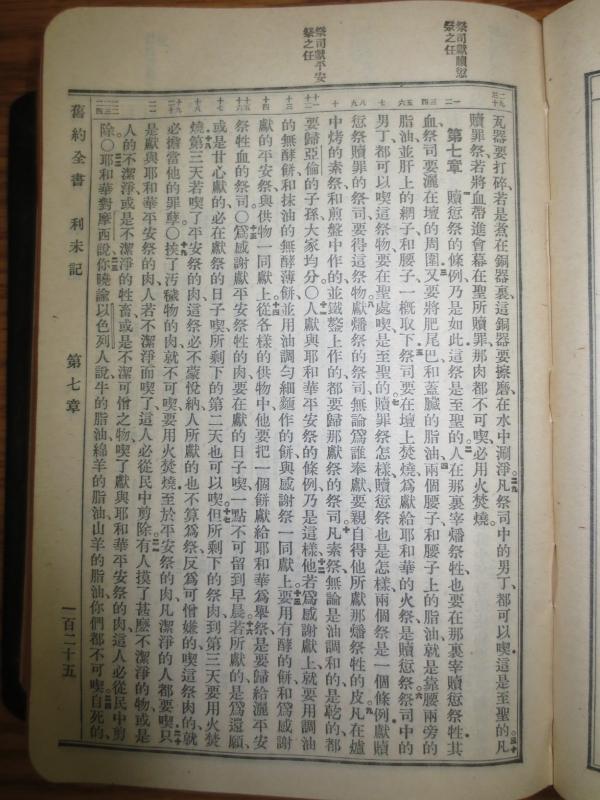 祭司獻贖愆
祭之任
祭司獻平安
祭之任
瓦器要打碎、若是煮在銅器裏、這銅器要擦磨、在水中涮淨。凡祭司中的男丁、都可以喫、這是至聖的。凡
贖罪祭、若將血帶進會幕在聖所贖罪、那肉都不可喫、必用火焚燒。
第七章 贖愆祭的條例、乃是如此、這祭是至聖的。人在那裏宰燔祭牲、也要在那裏宰贖愆祭牲、其
血、祭司要灑在壇的周圍。又要將肥尾巴和蓋臟的脂油、兩個腰子和腰子上的脂油、就是靠腰兩旁的
脂油、並肝上的網子和腰子、一概取下。祭司要在壇上焚燒、爲獻給耶和華的火祭、是贖愆祭。祭司中的
男丁都可以喫這祭物、要在聖處喫、是至聖的。贖罪祭怎樣、贖愆祭也是怎樣、兩個祭是一個條例、獻贖
愆祭贖罪的祭司、要得這祭物。獻燔祭的祭司、無論爲誰奉獻、要親自得他所獻那燔祭牲的皮。凡在爐
中烤的素祭、和煎盤中作的、並鐵鏊上作的、都要歸那獻祭的祭司。凡素祭無論是油調和的、是乾的、都
要歸亞倫的子孫大家均分。〇人獻與耶和華平安祭的條例、乃是這樣。他若爲感謝獻上、就要用調油
的無酵餅、和抹油的無酵薄餅、並用油調勻細麵作的餅、與感謝祭一同獻上。要用有酵的餅、和爲感謝
獻的平安祭、與供物一同獻上。從各樣的供物中、他要把一個餅獻給耶和華爲舉祭、是要歸給灑平安
祭牲血的祭司。〇爲感謝獻平安祭牲的肉、要在獻的日子喫、一點不可留到早晨。若所獻的是爲還願、
或是甘心獻的、必在獻祭的日子喫、所剩下的第二天也可以喫。但所剩下的祭肉、到第三天要用火焚
燒。第三天若喫了平安祭的肉、這祭必不蒙悅納、人所獻的也不算爲祭、反爲可憎嫌的、喫這祭肉的、就
必擔當他的罪孽。〇挨了汚穢物的肉、就不可喫、要用火焚燒、至於平安祭的肉、凡潔淨的人都要喫。只
是獻與耶和華平安祭的肉、人若不潔淨而喫了、這人必從民中剪除。有人摸了甚麽不潔淨的物、或是
人的不潔淨、或是不潔淨的牲畜、或是不潔可憎之物、喫了獻與耶和華平安祭的肉、這人必從民中剪
除。〇耶和華對摩西說、你曉諭以色列人說、牛的脂油、綿羊的脂油、山羊的脂油、你們都不可喫。自死的、
舊約全書 利未記 第七章 一百二十五